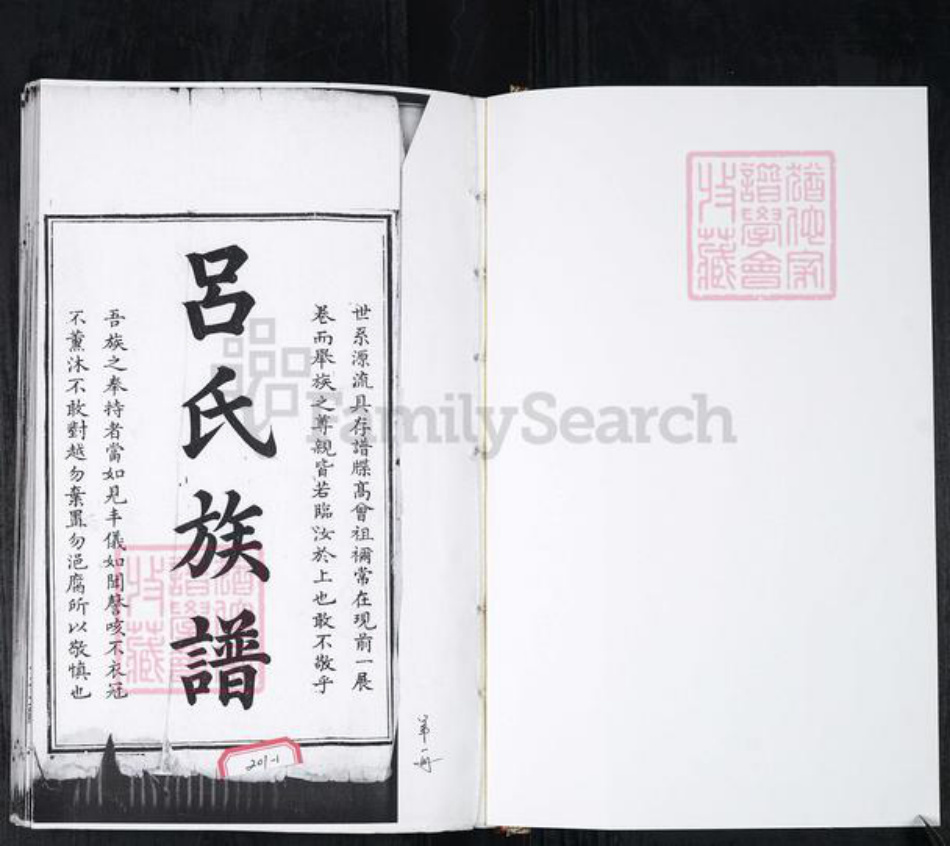 世系源流具存譜牒高曾祖禰常在現前一展
卷而舉族之尊親皆若臨汝於上也敢不敬乎
呂氏族譜
吾族之奉持者當如見丰儀如聞謦咳不衣冠
不薰沐不敢對越勿棄置勿浥腐所以敬慎也
201-1
第一冊
FamilySearch
譜學會
收藏